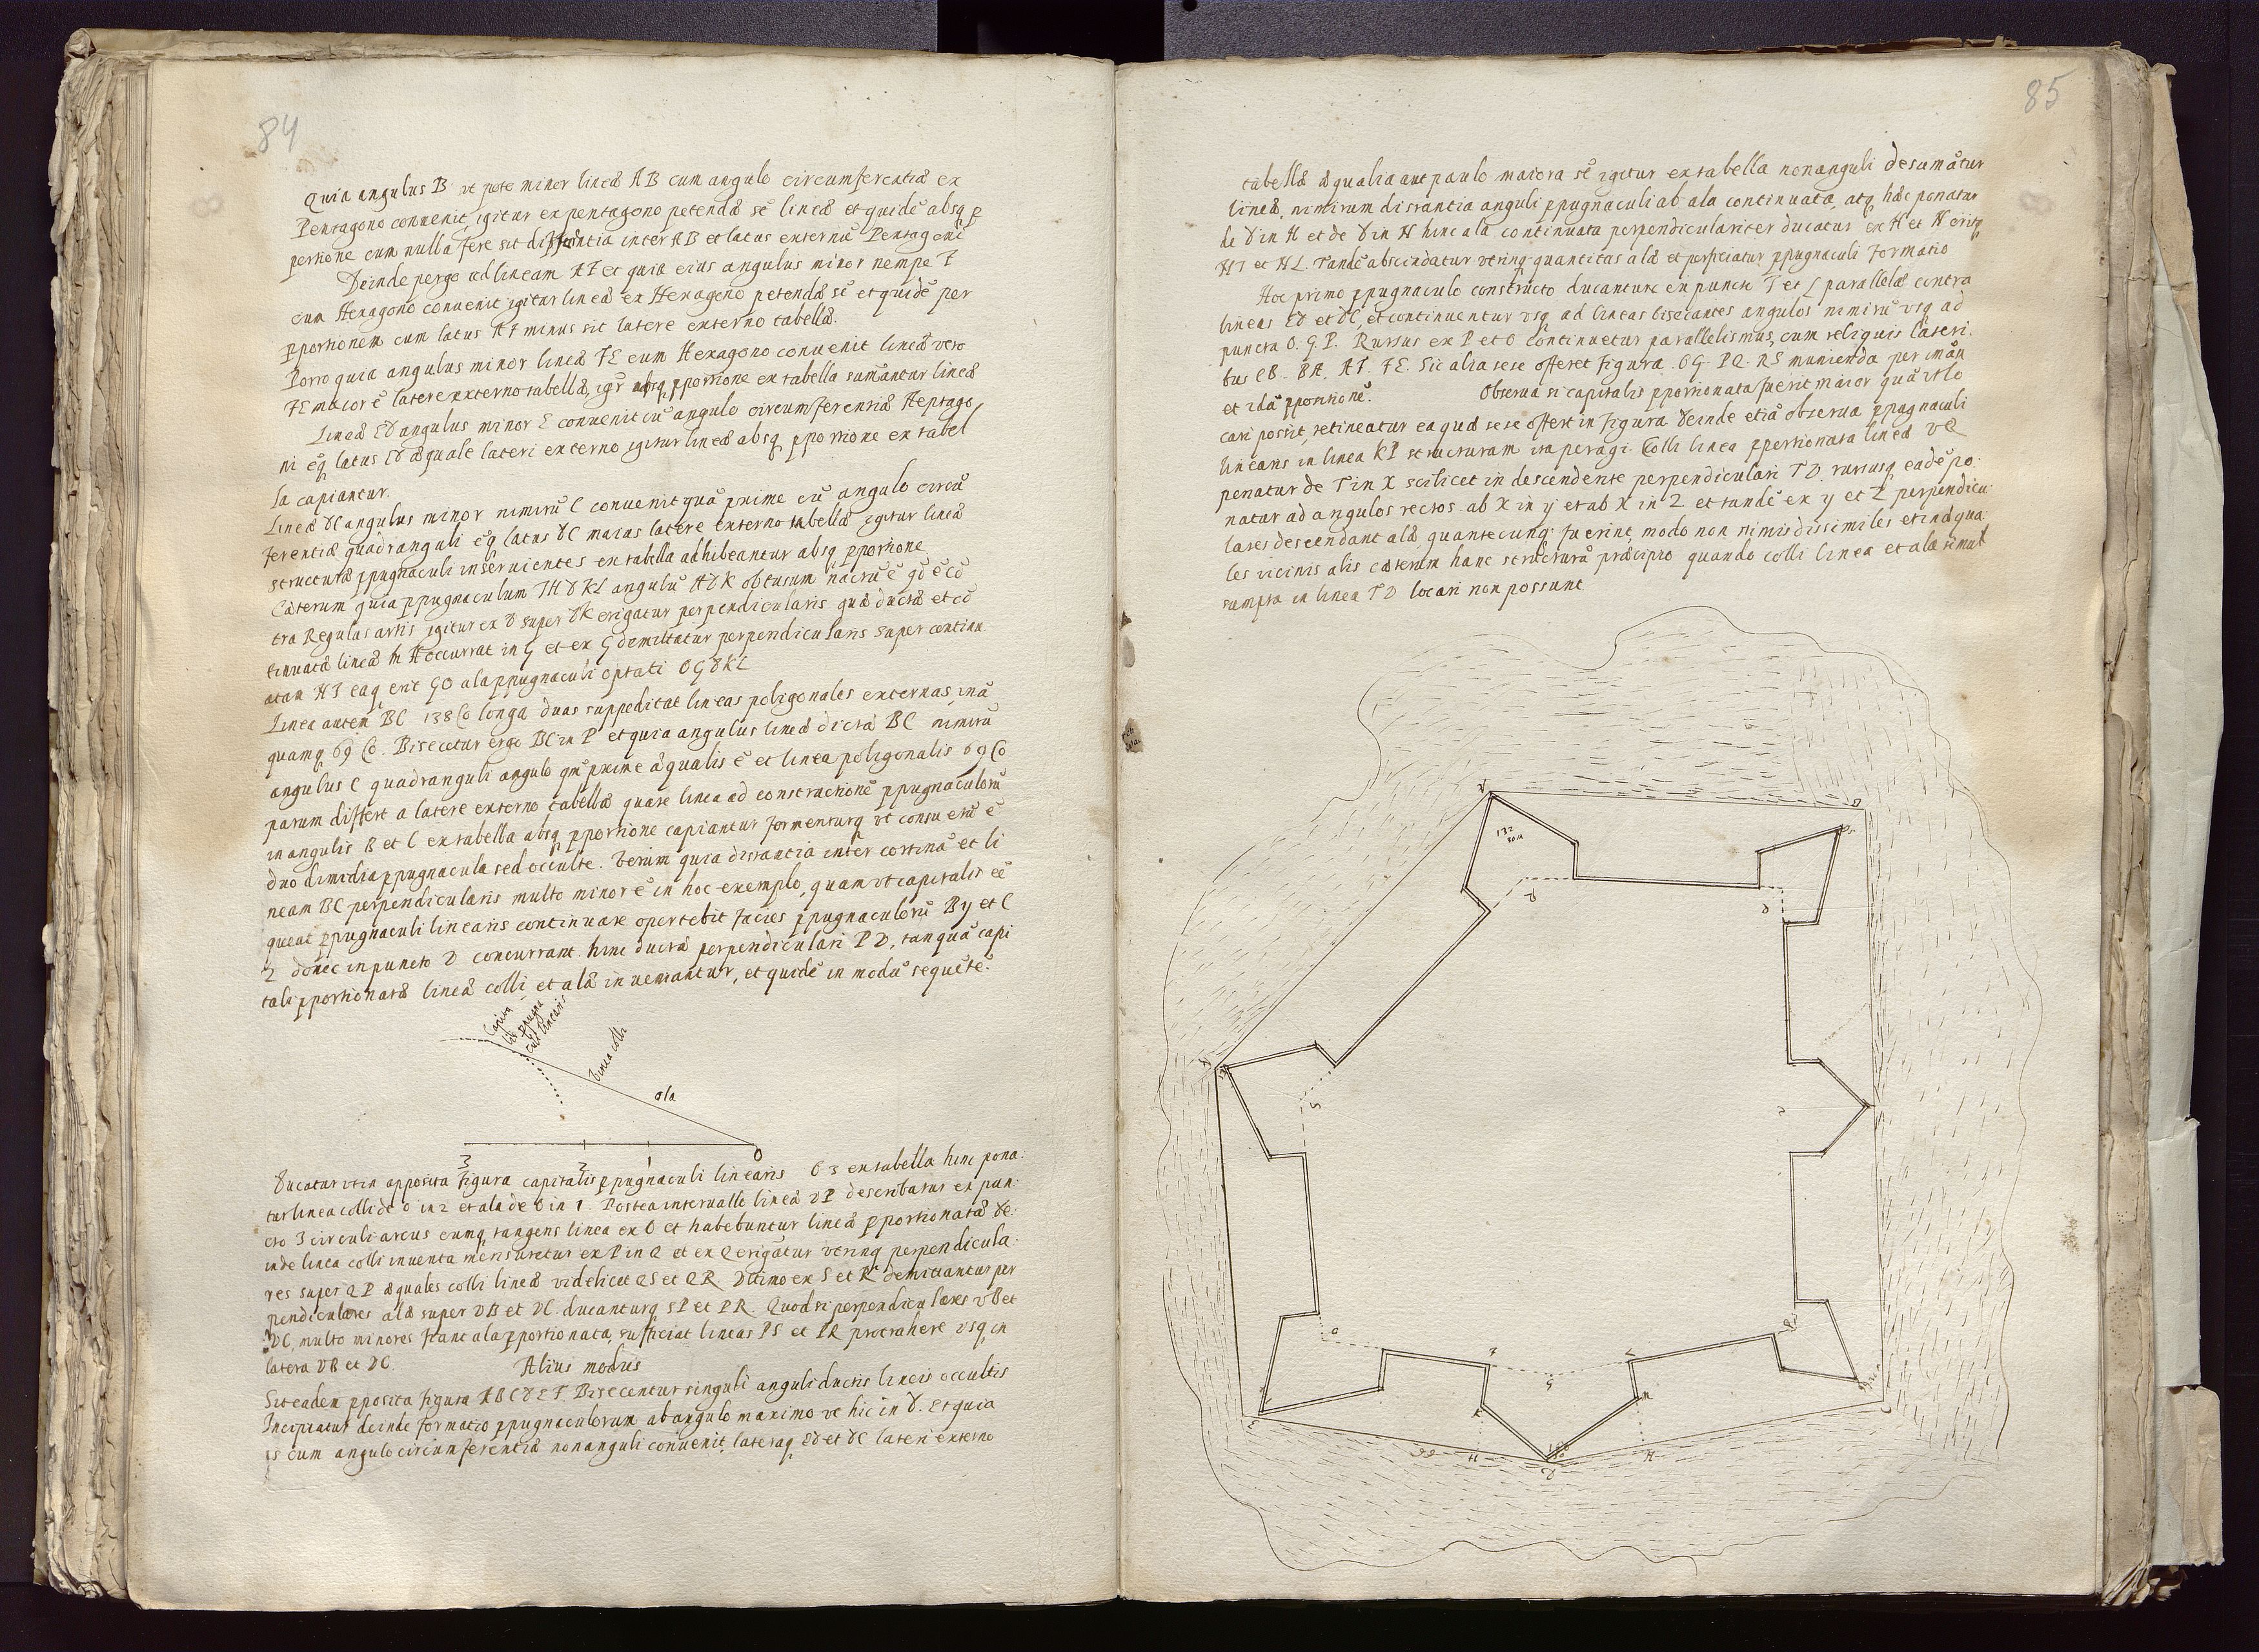 84
Quia angulus B ut pote minor lineæ AB cum angulo circumferentiæ ex
Pentagono convenit, igitur ex pentagono petendæ sē lineæ et quidē absq p
portione cum nulla fere sit differentia inter AB et latus externū Pentagoni
Deinde pergo ad lineam AF et quia eius angulus minor nempe F
cum Hexagono convenit igitur lineæ ex Hexagono petendæ sē et quidē per
pportionem cum latus AF minus sit latere externo tabellæ.
Porro quia angulus minor lineæ FE cum Hexagono convenit lineæ vero
FE maior ē latere externo tabellæ, igr absq pportione ex tabella sumantur lineæ
Lineæ Ed angulus minor E convenit cū angulo circumferentiæ Heptago
ni eq latus Ed æquale lateri externo igitur lineæ absq pportione ex tabel
la capiantur.
Lineæ dC angulus minor nimirū C convenit quā prime cū angulo circū
ferentiæ quadranguli eq latus dC maius latere externo tabellæ igitur lineæ
structuræ ppugnaculi inservientes ex tabella adhibeantur absq pportione
Cæterum quia ppugnaculum IHdKL angulū HdK obtusum nactū ē qd ē cō
tra Regulas artis igitur ex d super dK erigatur perpendicularis quæ ducta et cō
tinuatæ lineæ in H occurrat in G et ex G demittatur perpendicularis super continu
atam HI eaq erit GO ala ppugnaculi optati OGdKL
Linea autem BC 138 longa duas suppeditat lineas poligonales externas, unā
quamq 69. Bisecetur ergo BC in P et quia angulus lineæ dictæ BC nimirū
angulus C quadranguli angulo qm prime æqualis ē et linea poligonalis 69
parum differt a latere externo tabellæ quare linea ad constructionē ppugnaculorū
in angulis B et C ex tabella absq pportione capiantur formenturq ut consuetū ē
duo dimidia ppugnacula sed occulte. Verum quia distantia inter cortinā et li
neam BC perpendicularis multo minor ē in hoc exemplo, quam ut capitalis eē
queat ppugnaculi linearis continuare oportebit facies ppugnaculorū By et C
Z donec in puncto D concurrant. hinc ducta perpendiculari PD, tanquā capi
tali pportionatæ lineæ colli et alæ inveniantur, et quidē in modū sequētē.
Capita
lis ppugna
culi linearis
linea colli
ala
3 2 1 0
Ducatur ut in apposita figura capitalis ppugnaculi linearis 0 3 ex tabella hinc pona
tur linea colli de 0 in 2 et ala de 0 in 1. Postea intervallo lineæ DP describatur ex pun
cto 3 circuli arcus eumq tangens linea ex 0 et habebuntur lineæ pportionatæ de
inde linea colli inventa mensuretur ex P in Q et ex Q erigātur utrinq perpendicula
res super QP æquales colli lineæ videlicet QS et QR. Ultimo ex S et R demittantur per
pendiculares alæ super DB et DC. ducanturq SP et PR. Quod si perpendiculares DB et
DC, multo minores fiant ala pportionata, sufficiat lineas PS et PR protrahere usq in
latera DB et DC. Alius modus
Sit eadem pposita figura ABCdEF. Bisecentur singuli anguli ductis lineis occultis
Incipiatur deinde formatio ppugnaculorum ab angulo maximo ut hic in d. Et quia
is cum angulo circumferentiæ nonanguli convenit, lateraq Ed et dC lateri externo
85
tabellæ æqualia aut paulo maiora sē igitur ex tabella nonanguli desumātur
lineæ, nimirum distantia anguli ppugnaculi ab ala continuata, atq hæc ponatur
de d in H et de d in N hinc ala continuata perpendiculariter ducatur ex H et N eritq
HI et NL. Tandē abscindatur utrinq quantitas alæ et perficiatur ppugnaculi formatio
Hoc primo ppugnaculo constructo ducantur ex punctis I et L parallelæ contra
lineas Ed et dC, et continuentur usq ad lineas bisecantes angulos nimirū usq ad
puncta O. G. P. Rursus ex P et O continuetur parallelismus, cum reliquis lateri
bus CB. BA. AF. FE. Sic alia sese offeret figura OG. PQ. RS munienda per iman
et 2dā ppositionē. Observa si capitalis pportionata fuerit maior quā ut lo
cari possit, retineatur ea quæ sese offert in figura deinde etiā observa ppugnaculi
linearis in linea KP structuram ita peragi. Colli linea pportionata lineæ DQ
ponatur de T in X scilicet in descendente perpendiculari TD. rursusq eadē po
natur ad angulos rectos ab X in y et ab X in Z et tandē ex y et Z perpendicu
lares descendant alæ quantecunq fuerint, modo non nimis dissimiles et inæqua
les vicinis alis cæterum hanc structurā præcipio quando colli linea et alæ simul
sumpta in linea TD locari non possunt
132
G
H
d
C